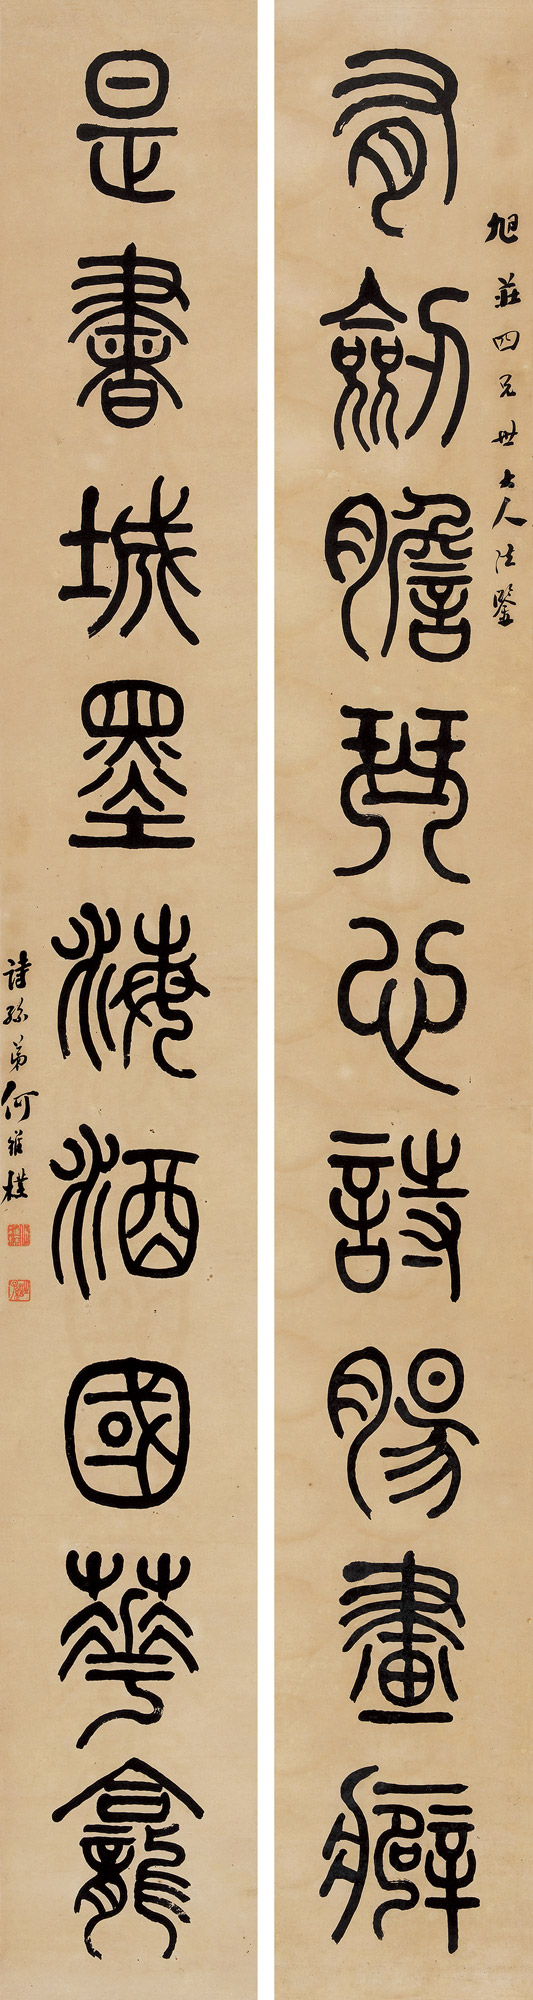 旭莊四兄世大人法鑒
有劒膽琴心詩腸畫癖
是書城墨海酒國華龕
詩孫弟何維樸